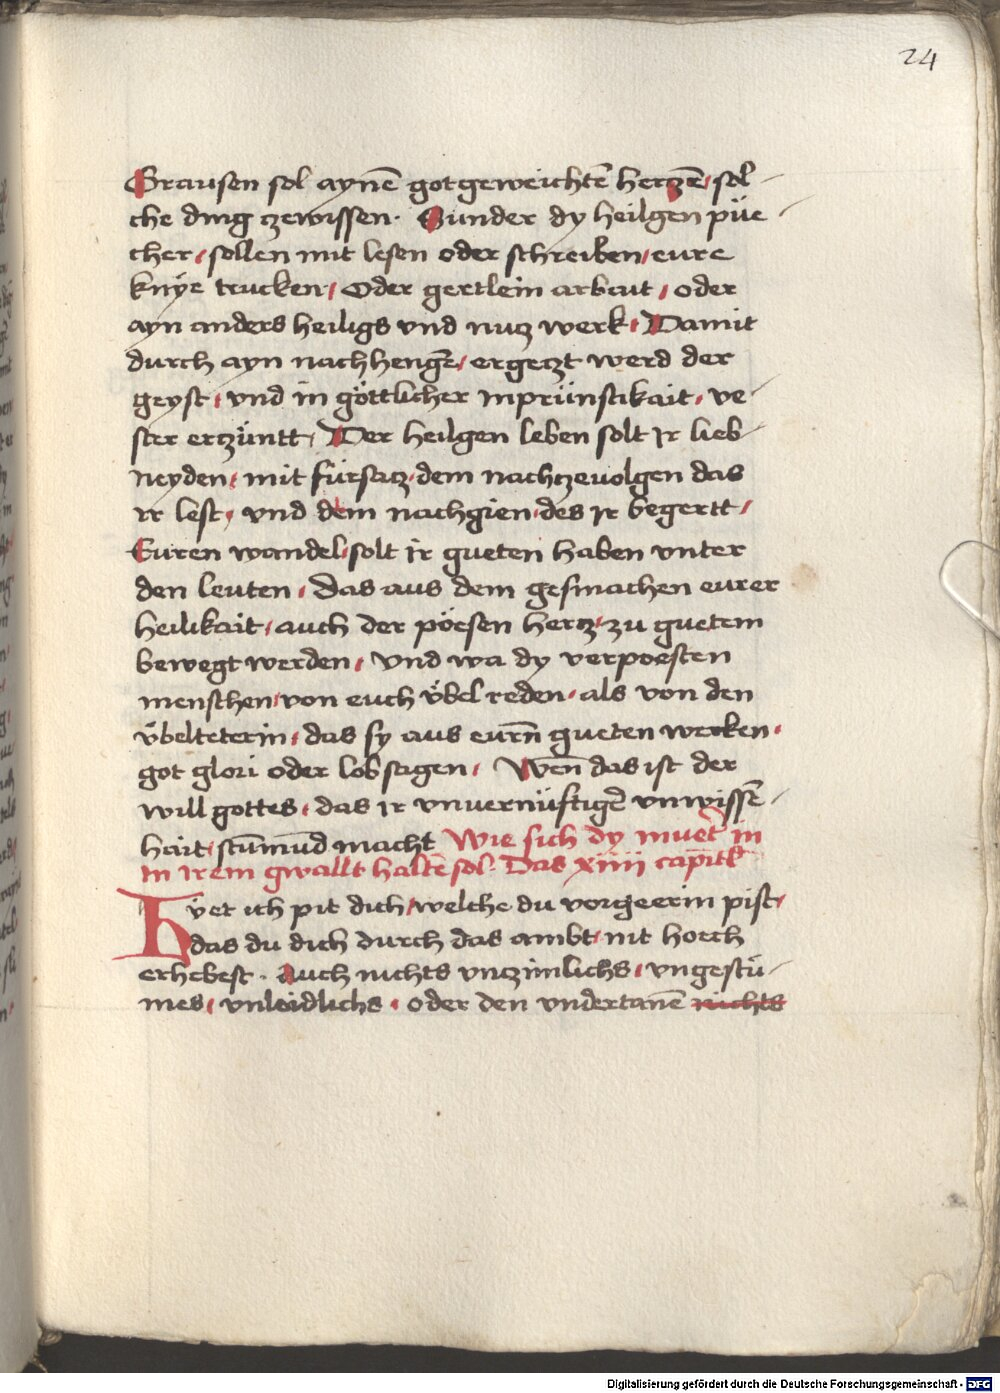 24
Grausen sol aynē gotgeweichtē herczē, sol-
che ding czewissen. Sunder dy heilgen püe-
cher, sollen mit lesen oder schreiben, eure
knÿe trucken, Oder gertlein arbait, oder
ayn anders heiligs vnd nucz werk, Damit
durch ayn nachhengē, ergeczt werd der
geyst, vnd in göttlicher inprünstikait, ve-
ster erczüntt, Der heilgen leben solt ir lieb-
neyden, mit fürsacz, dem nachczeuolgen das
ir lest, vnd dem nachgien, des ir begertt,
Euren wandel, solt ir gueten haben vnter
den leuten, das aus dem gesmachen eurer
heilikait, auch der pöesen hercz, zu guetem
bewegt werden, Vnd wa dy verpoesten
menschen, von euch vbel reden, als von den
vbelteterin, das sy aus eurn̄ gueten werken,
got glori oder lob sagen, Wen̄ das ist der
will gottes, das ir vnuernüftigē vnwissē-
hait, stum̄und macht Wie sich dy muet̄ in
in irem gwallt haltē sol. Das xiiii capitl̄
Hüet ich pit dich, welche du vorgeerin pist,
das du dich durch das ambt, nit hoech
erhebest. Auch nichts vnczimlichs, vngestü-
mes, vnleidlichs, oder den vndertanē nichts
Digitalisierung gefördert durch die Deutsche Forschungsgemeinschaft - DFG